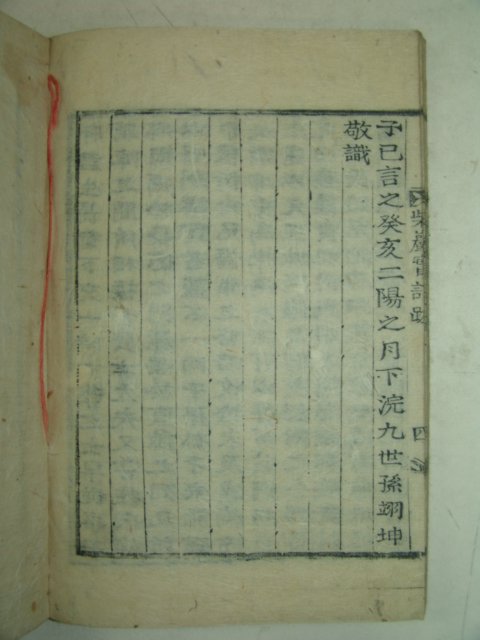 子已言之癸亥二陽之月下浣九世孫翊坤
敬識
柴巖實記跋
四